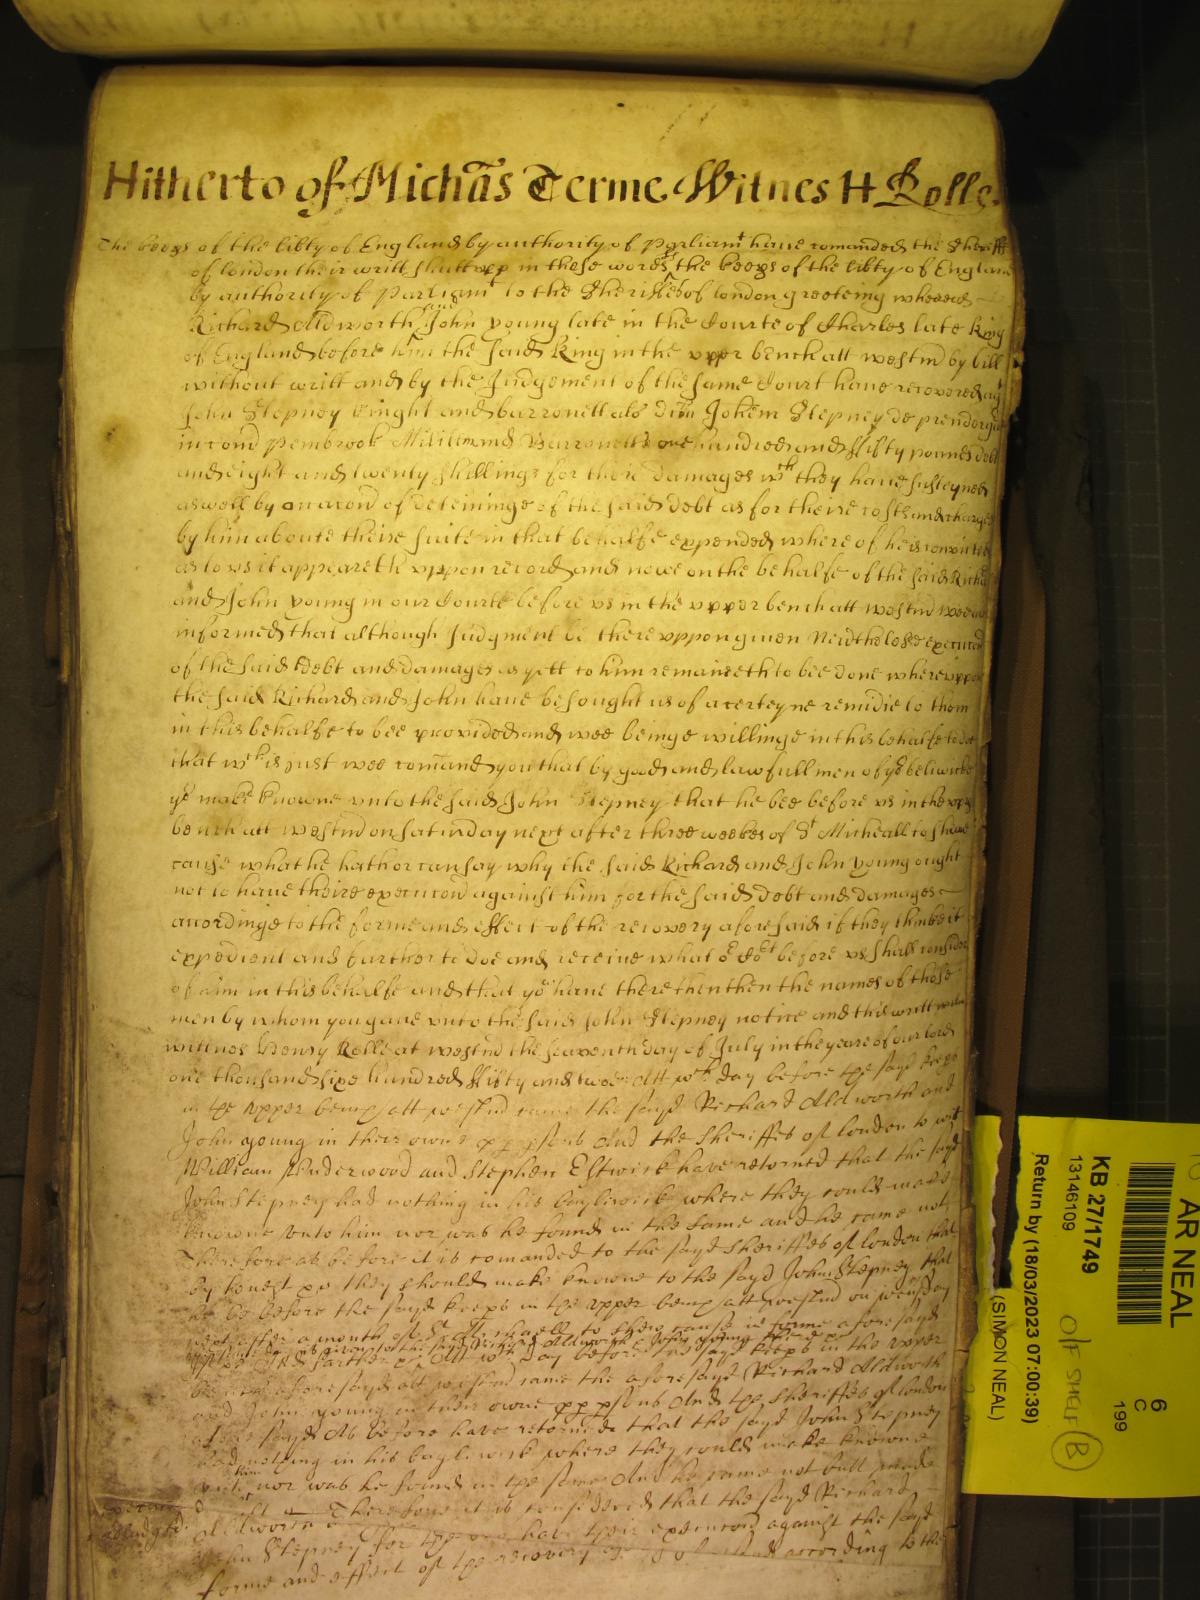 Hitherto of Michas Terme Witnes H Rolle
The keeps of the libty of England by authority of Parliamt have comanded the Sheriffs
of london their writt shutt upp in these words the keeps of the libty of England
by authority of Parliamt to the Sheriffes of london greeteing whereas
Richard Aldworth and John young late in the Courte of Charles late King
of England before him the said King in the upper bench att westmr by bill
without writt and by the Judgement of the same Court have recovered agt
John Stepney knight and barronett als dcm Johem Stepney de prendergast
in Com Pembrook Barronett one hundred and fifty pounds debt
and eight and twenty shillings for their damages wch they have susteyned
aswell by occacion of deteininge of the said debt as for theire costs and charges
by him aboute theire suite in that behalfe expended where of he is convicted
as to us it appeareth uppon record and nowe on the behalfe of the said Richard
and John young in our Courte before us in the upper bench att westmr wee are
informed that although Judgment be thereuppon given Neidthelesse execution
of the said debt and damages as yett to him remaineth to bee done whereuppon
the said Richard and John have besought us of a certeyne remidie to them
in this behalfe to bee provided and wee beinge willinge in this behalfe to doe
that wch is Just wee comand you that by good and lawfull men of yor beliwicke
ye make knowne unto the said John Stepney that he bee before us in the upper
bench att westmr on Saturday next after three weekes of St Micheall to shewe
cause what he hath or can say why the said Richard and John young ought
not to have theire execucion against him for the said debt and damages
accordinge to the forme and effect of the recovery aforesaid if they thinke it
expedient and further to doe and receive what or Cort before us shall consider
of him in this behalfe and that you have there then the names of those
men by whom you gave unto the said John Stepney notice and this writt
wittnes Henry Rolle at westmr the seaventh day of July in the yeare of our lord
one thousand sixe hundred fifty and twoe Att wch day before the sayd keeps
in the upper bench att westmr came the sayd Richard Aldworth and
John young in their owne ppper psons And the Sheriffes of london to wit
William Underwood and Stephen Estwick have retorned that the sayd
John Stepney had nothing in his bayliwick where they could make
knowne unto him nor was he found in the same and he came not
Therefore as before it is comanded to the sayd Sheriffes of london that
by honest &c they should make knowne to the sayd John Stepney that
he be before the sayd keeps in the upper bench att westmr on
next after a month of St Michaell to shew cause in forme aforesayd
And further &c Att wch day before the sayd keeps in the upper
bench aforesayd att westmr came the aforesayd Richard Aldworth
and John young in their owne ppper psons And the Sheriffes of london
aforesayd As before have retorned that the sayd John Stepney
had nothing in his bayliwick where they could make knowne
unto him nor was he found in the same And he came not butt made
default Therefore it is considered that the sayd Richard
Aldworth
John Stepney for the have their execucion against the sayd
forme and effect of the recovery according to the
AR NEAL
KB 27/1749
13146109
Return by (18/03/2023 07:00:39)
(SIMON NEAL)
6
C
199
O/F SHELF B